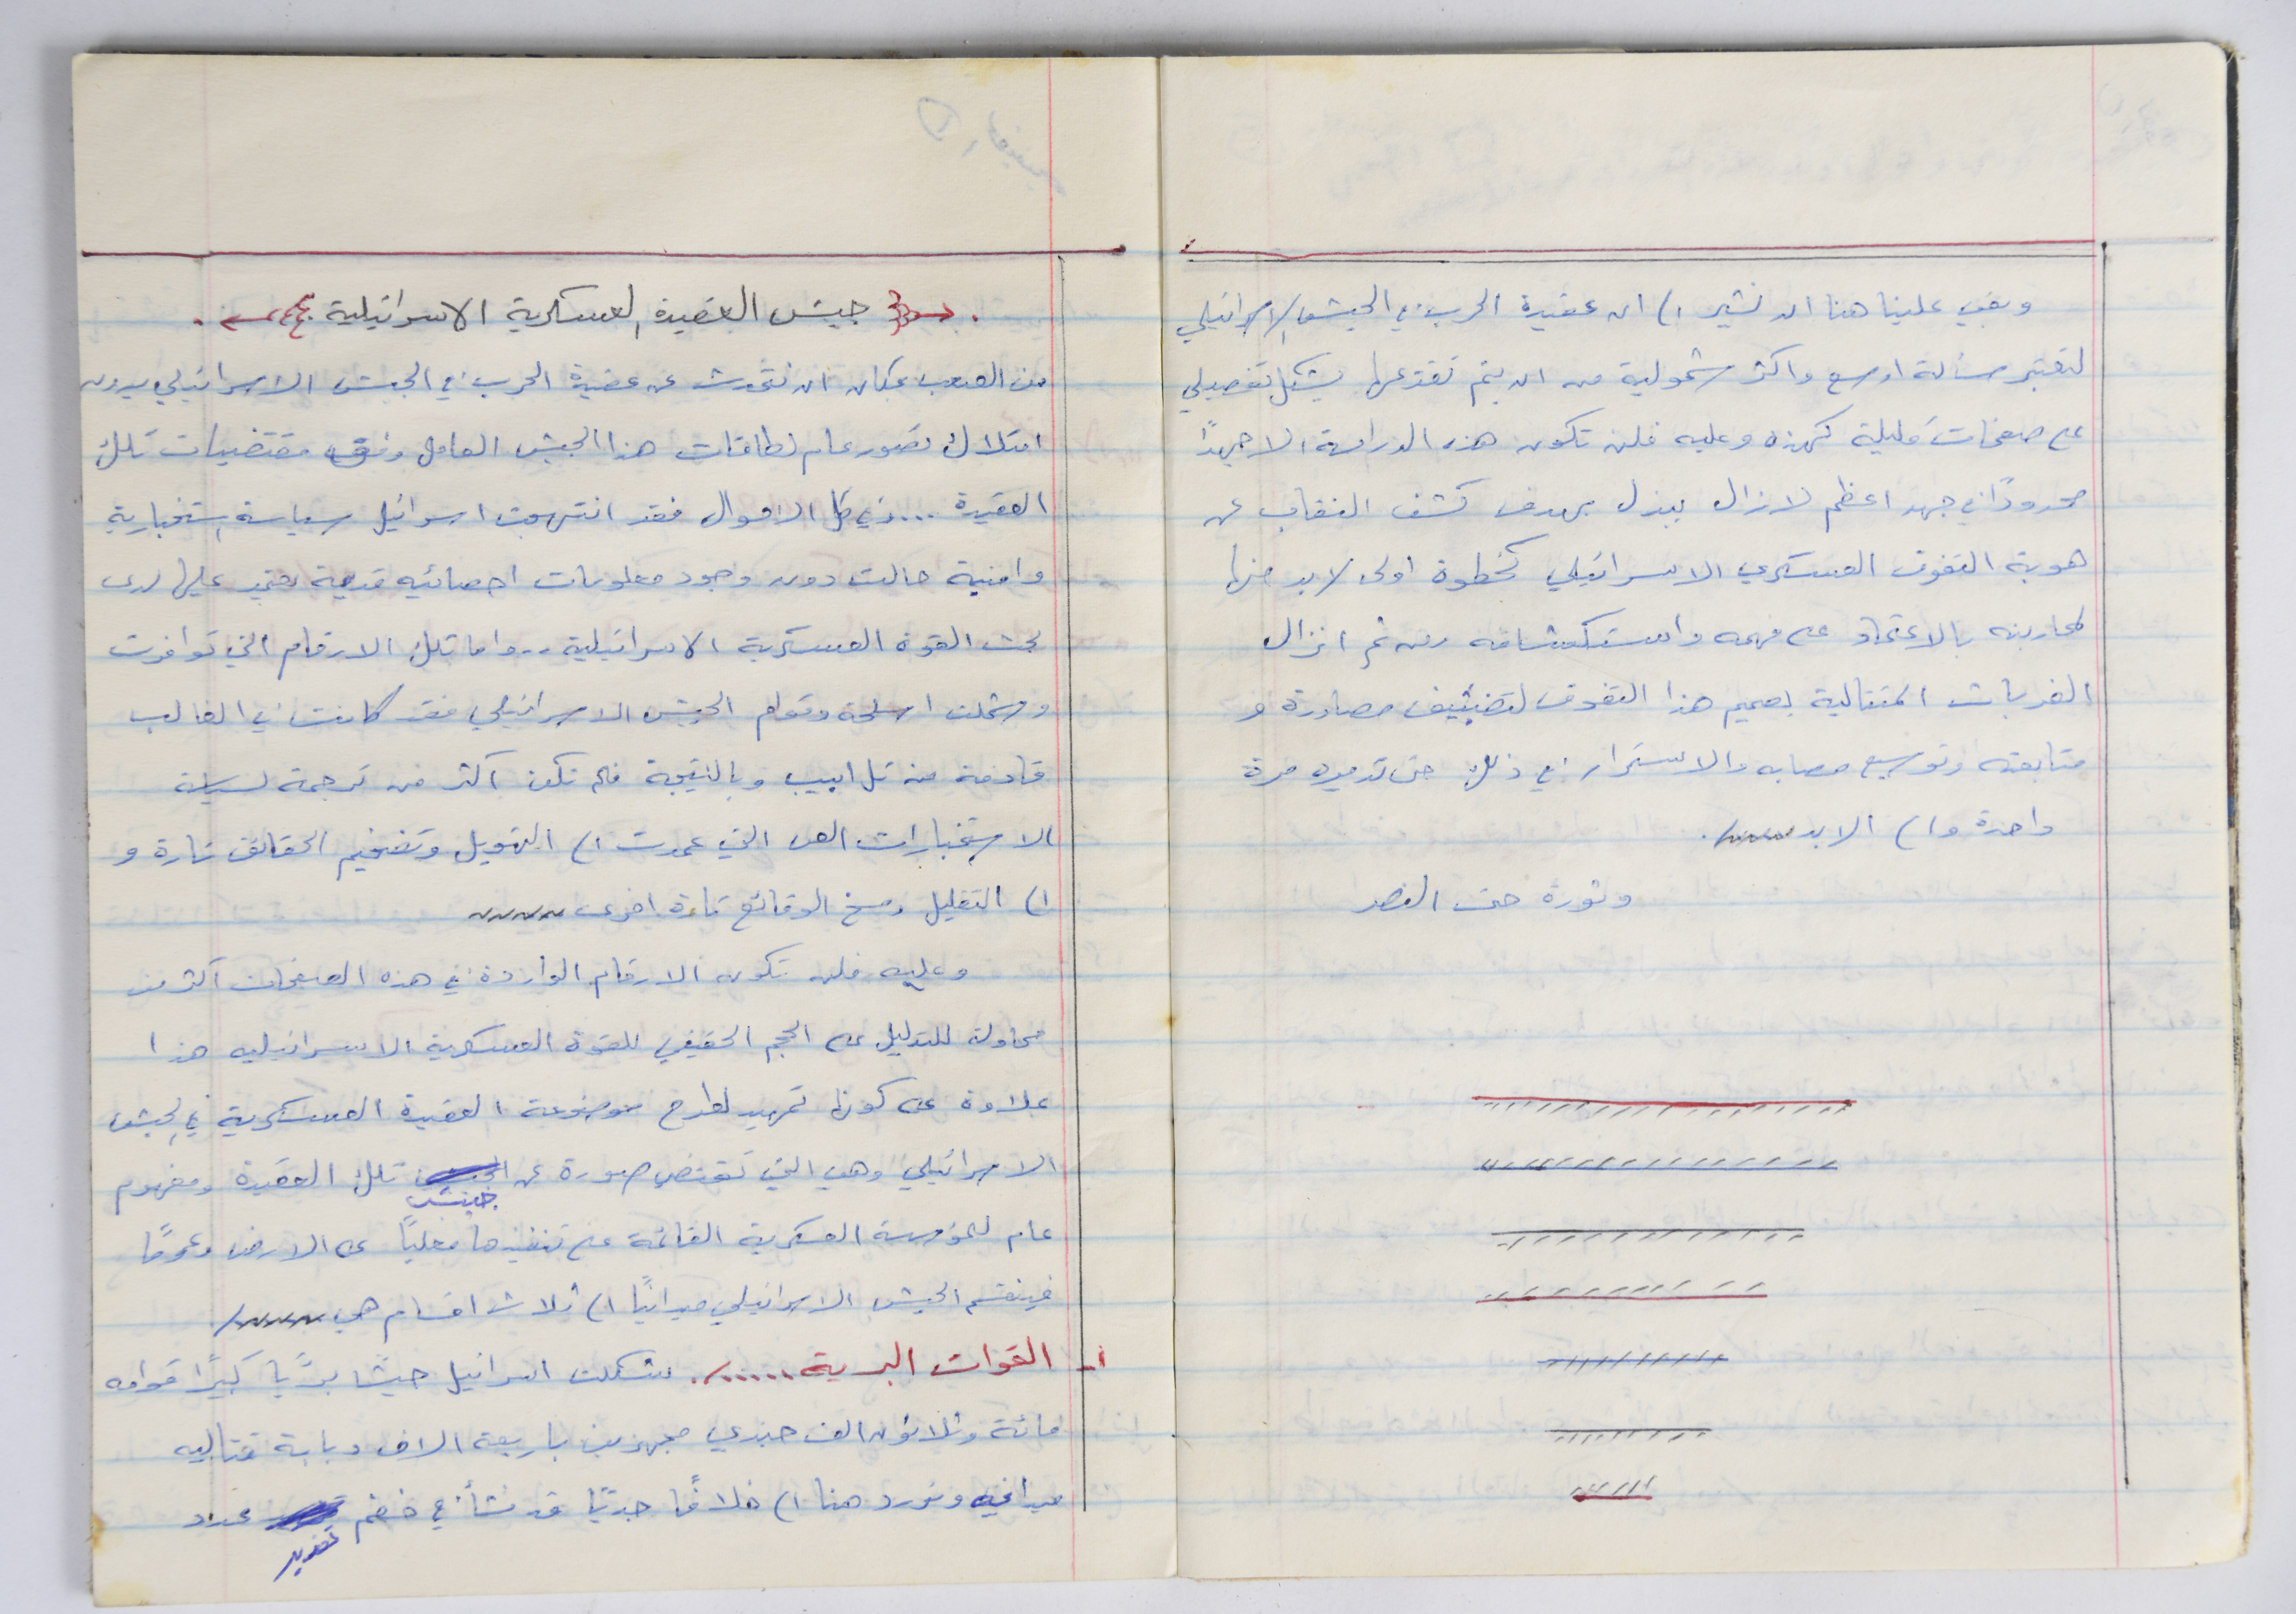 وبقي علينا هنا ان نشير الى ان عقيدة الحرب في الجيش الاسرائيلي
لتعتبر مسألة اوسع واكثر شمولية من ان يتم نقدعها بشكل تفصيلي
على صفحات قليلة كهذه وعليه فلن تكون هذه الدراسة الا جهدًا
محدودًا في جهد اعظم لازال يبذل بهدف كشف النقاب عن
هوية التفوق العسكري الاسرائيلي كخطوة اولى لابد منها
لمحاربته بالاعتماد على فهمه واستكشافه ومن ثم انزال
الضربات المتتالية بصميم هذا التفوق لتضييف مصادرة و
متابعته وتوسيع مصابه والاستمرار في ذلك حتى تدميره مرة
واحدة والى الابد.
وثورة حتى النصر
جيش العقيدة العسكرية الاسرائيلية
من الصعب بمكان ان نتحدث عن عقيدة الحرب في الجيش الاسرائيلي بدون
امتلاك تصور عام لطاقات هذا الجيش العامل وفق مقتضيات تلك
العقيدة ... وفي كل الاحوال فقد انتهجت اسرائيل سياسة استخبارية
وامنية حالت دون وجود معلومات احصائيه قديمة يعتمد عليها لدى
بحث القوة العسكرية الاسرائيلية .. واما تلك الارقام التي توافرت
وشملت اسلحة وقوام الجيش الاسرائيلي فقد كانت في الغالب
قادمة من تل ابيب وبالنتيجة فلم تكن اكثر من ترجمة لسياسة
الاستخبارات التي عمدت الى التهويل وتضخيم الحقائق تارة و
الى التقليل ومسخ الوقائع تارة اخرى
وعليه فلن تكون الارقام الواردة في هذه الصفحات اكثر من
محاولة للتدليل على الحجم الحقيقي للقوة العسكرية الاسرائيليه هذا
علاوة على كونها تمهيد لطرح موضوعة العقيدة العسكرية في الجيش
الاسرائيلي وهي التي تقتضي صورة عن جيش تلك العقيدة ومفهوم
عام للمؤسسة العسكرية القائمة على تنفيذها فعليًا على الارض وعمومًا
فينقسم الجيش الاسرائيلي ميدانيًا الى ثلاث اقسام هي
أ- القوات البرية ...... شكلت اسرائيل جيشًا بريًا كبيرًا قوامه
مائة وثلاثون الف جندي مجهزين باربعة الاف دبابة قتاليه
ميدانيه ونورد هنا الى خلافًا جديًا قد نشأ في خضم تقدير عدد